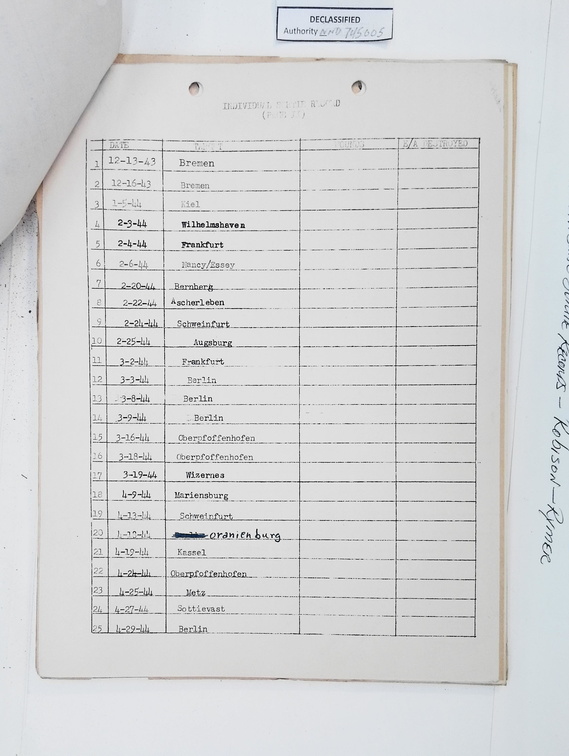 DECLASSIFIED
Authority NND 745005
INDIVIDUAL RECORD
DATE TARGET A/A DESTROYED
1 12-13-43 Bremen
2 12-16-43 Bremen
3 1-5-44 Kiel
4 2-3-44 Wilhelmshaven
5 2-4-44 Frankfurt
6 2-6-44 Nancy/Essey
7 2-20-44 Bernberg
8 2-22-44 Ascherleben
9 2-24-44 Schweinfurt
10 2-25-44 Augsburg
11 3-2-44 Frankfurt
12 3-3-44 Berlin
13 3-8-44 Berlin
14 3-9-44 Berlin
15 3-16-44 Oberpfoffenhofen
16 3-18-44 Oberpfoffenhofen
17 3-19-44 Wizernes
18 4-9-44 Mariensburg
19 4-13-44 Schweinfurt
20 Oranienburg
21 4-19-44 Kassel
22 4-24-44 Oberpfoffenhofen
23 4-25-44 Metz
24 4-27-44 Sottievast
25 4-29-44 Berlin
Records - Robison - Rymer